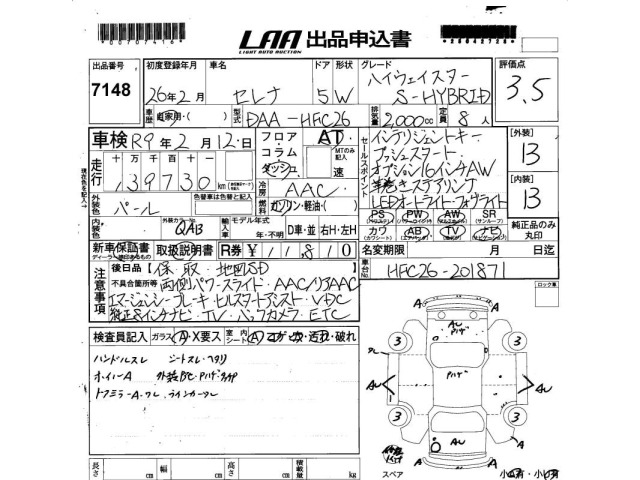 *00707416*
LAA 出品申込書
LIGHT AUTO AUCTION
出品番号
7148
初度登録年月
26年2月
車名
セレナ
ドア 形状
5W
グレード
ハイウェイスター
S-HYBRID
評価点
3.5
自家用・( )
型式
DAA-HFC26
排気量
2,000cc
定員
8人
車検 R9年2月12日
フロア・コラム・ダッシュ
AT
MTのみ記入
速
セールスポイント
インテリジェントキー
プッシュスタート
オプション16インチAW
革巻きステアリング
LEDオートライト・フォグライト
[外装]
13
[内装]
13
走行
十 万 千 百 十
139730 km
冷房
AAC
燃料
ガソリン・軽油・( )
外装色
パール
色替車は色替と記入
内装色
外装カラーNo.
QAB
輸入車
モデル年式
年・不明
D車・並 右H・左H
PS
PW
AW
SR
(サンルーフ)
カワ
(カワシート)
AB
(エアバッグ)
TV
(テレビ)
ナビ
純正品のみ丸印
新車保証書
取扱説明書
R券 ¥11,810
名変期限 月 日迄
注意事項
後日品【保・取・地図SD】
不具合箇所等 両側パワースライド・AAC/リアAAC
エマージェンシーブレーキ・ヒルスタートアシスト・VDC
純正8インチナビ・TV・バックカメラ・ETC
車台No.
HFC26-201871
ロック車
検査員記入 ガラス A・X要ス 室内シート A コゲ・穴・汚れ・破れ
ハンドルスレ シートスレ・ヘタリ
ホイールA
AU
Pハゲ
3
3
AU
Pハゲ
AU
3
3
AU
A
A
A
A
長さ cm
幅 cm
高さ cm
積載量 kg
スペア